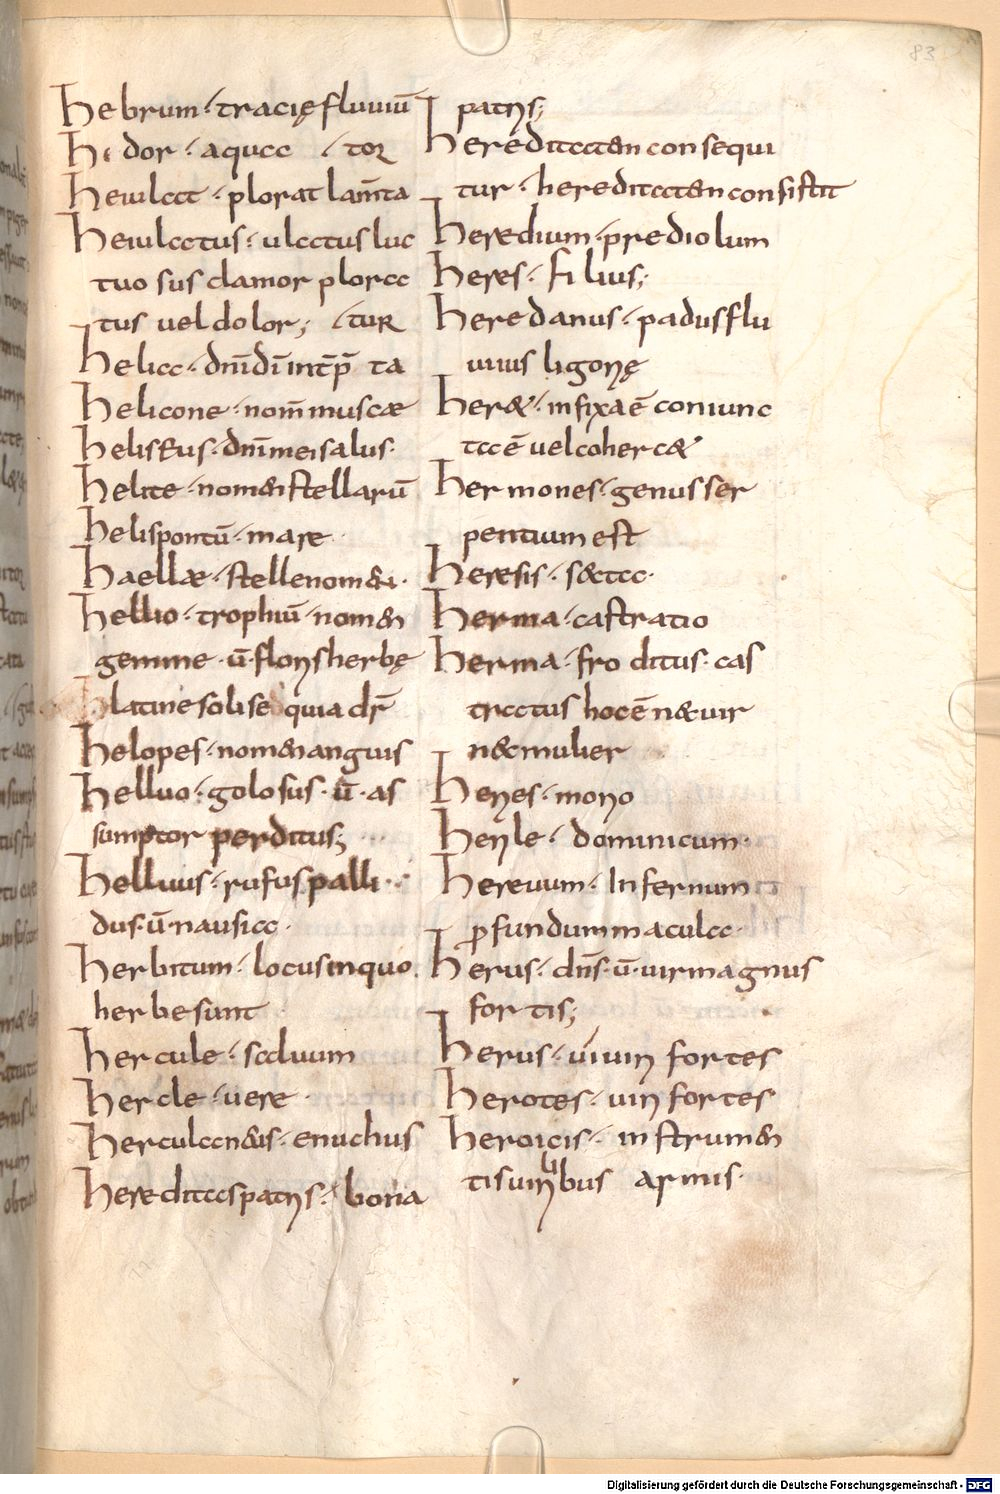 83
hebrum · tracię fluuiū
hidor · aqua / tor
heiulat · plorat lam̄ta
heiulatus · ulatus luc
tuosus clamor plora
tus uel dolor; / tur
helia · dn̄i dī int̄p̄ ta
helicone · nom̄ muscæ
heliseus · dn̄m mei salus ·
helite · nom& stellarū
helispontū · mare ·
haellæ · stelle nom& ·
hellio · trophiū · nomen
gemme · ū · floris herbę
latine solise quia dr̄
helopes · nomen anguis
helluo · golosus · ū · as
sumptor perditus;
helluus · rufus palli ·
dus · ū · nausia ·
herbitum · locus in quo
herbe sunt
hercule · saluum
hercle · uere ·
herculan&is · enuchus
hereditas patris · bona
patris;
hereditatem consequi
tur · hereditatem consistit
heredium · prediolum
heres · filius;
heredanus · padus flu
uius ligorię
her& · infixa ē coniunc
ta ē uel coherc&
hermones · genus ser
pentium est
heresis · s&ta ·
herma · castratio
herma · froditus · cas
tratus hoc ē n& uir
n& mulier
heries · morio
herile · dominicum ·
hereuum · Infernum
ꝓfundum macula ·
herus · dn̄s · ū · uir magnus
fortis;
herus · uiuiri fortes
herotes · uiri fortes
heroicis · instrumen
tis uirilibus armis ·
Digitalisierung gefördert durch die Deutsche Forschungsgemeinschaft - DFG